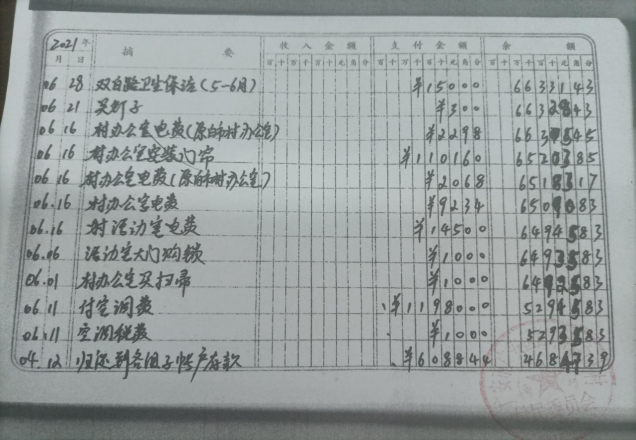 2021年 摘 要 收入金额 支付金额 余 额
月 日 百 十 万 千 百 十 元 角 分 百 十 万 千 百 十 元 角 分 百 十 万 千 百 十 元 角 分
06 28 双白路卫生保洁(5-6月) ¥15000 6633143
06 21 买钉子 ¥300 6632843
06 16 村办公室电费(原白村村办公室) ¥2298 6630545
06 16 村办公室安装门帘 ¥110160 6520385
06 16 村办公室电费(原白村村办公室) ¥2068 6518317
06.16 村办公室电费 ¥9234 6509083
06.16 村活动室电费 ¥14500 6494583
06.06 活动室大门购锁 ¥1000 6493583
06.01 村办公室买扫帚 ¥1000 6492583
06.11 付空调费 ¥1198000 5294583
06.11 空调税费 ¥1000 5293583
04.12 归还到各组子帐户存款 ¥608844 4684739